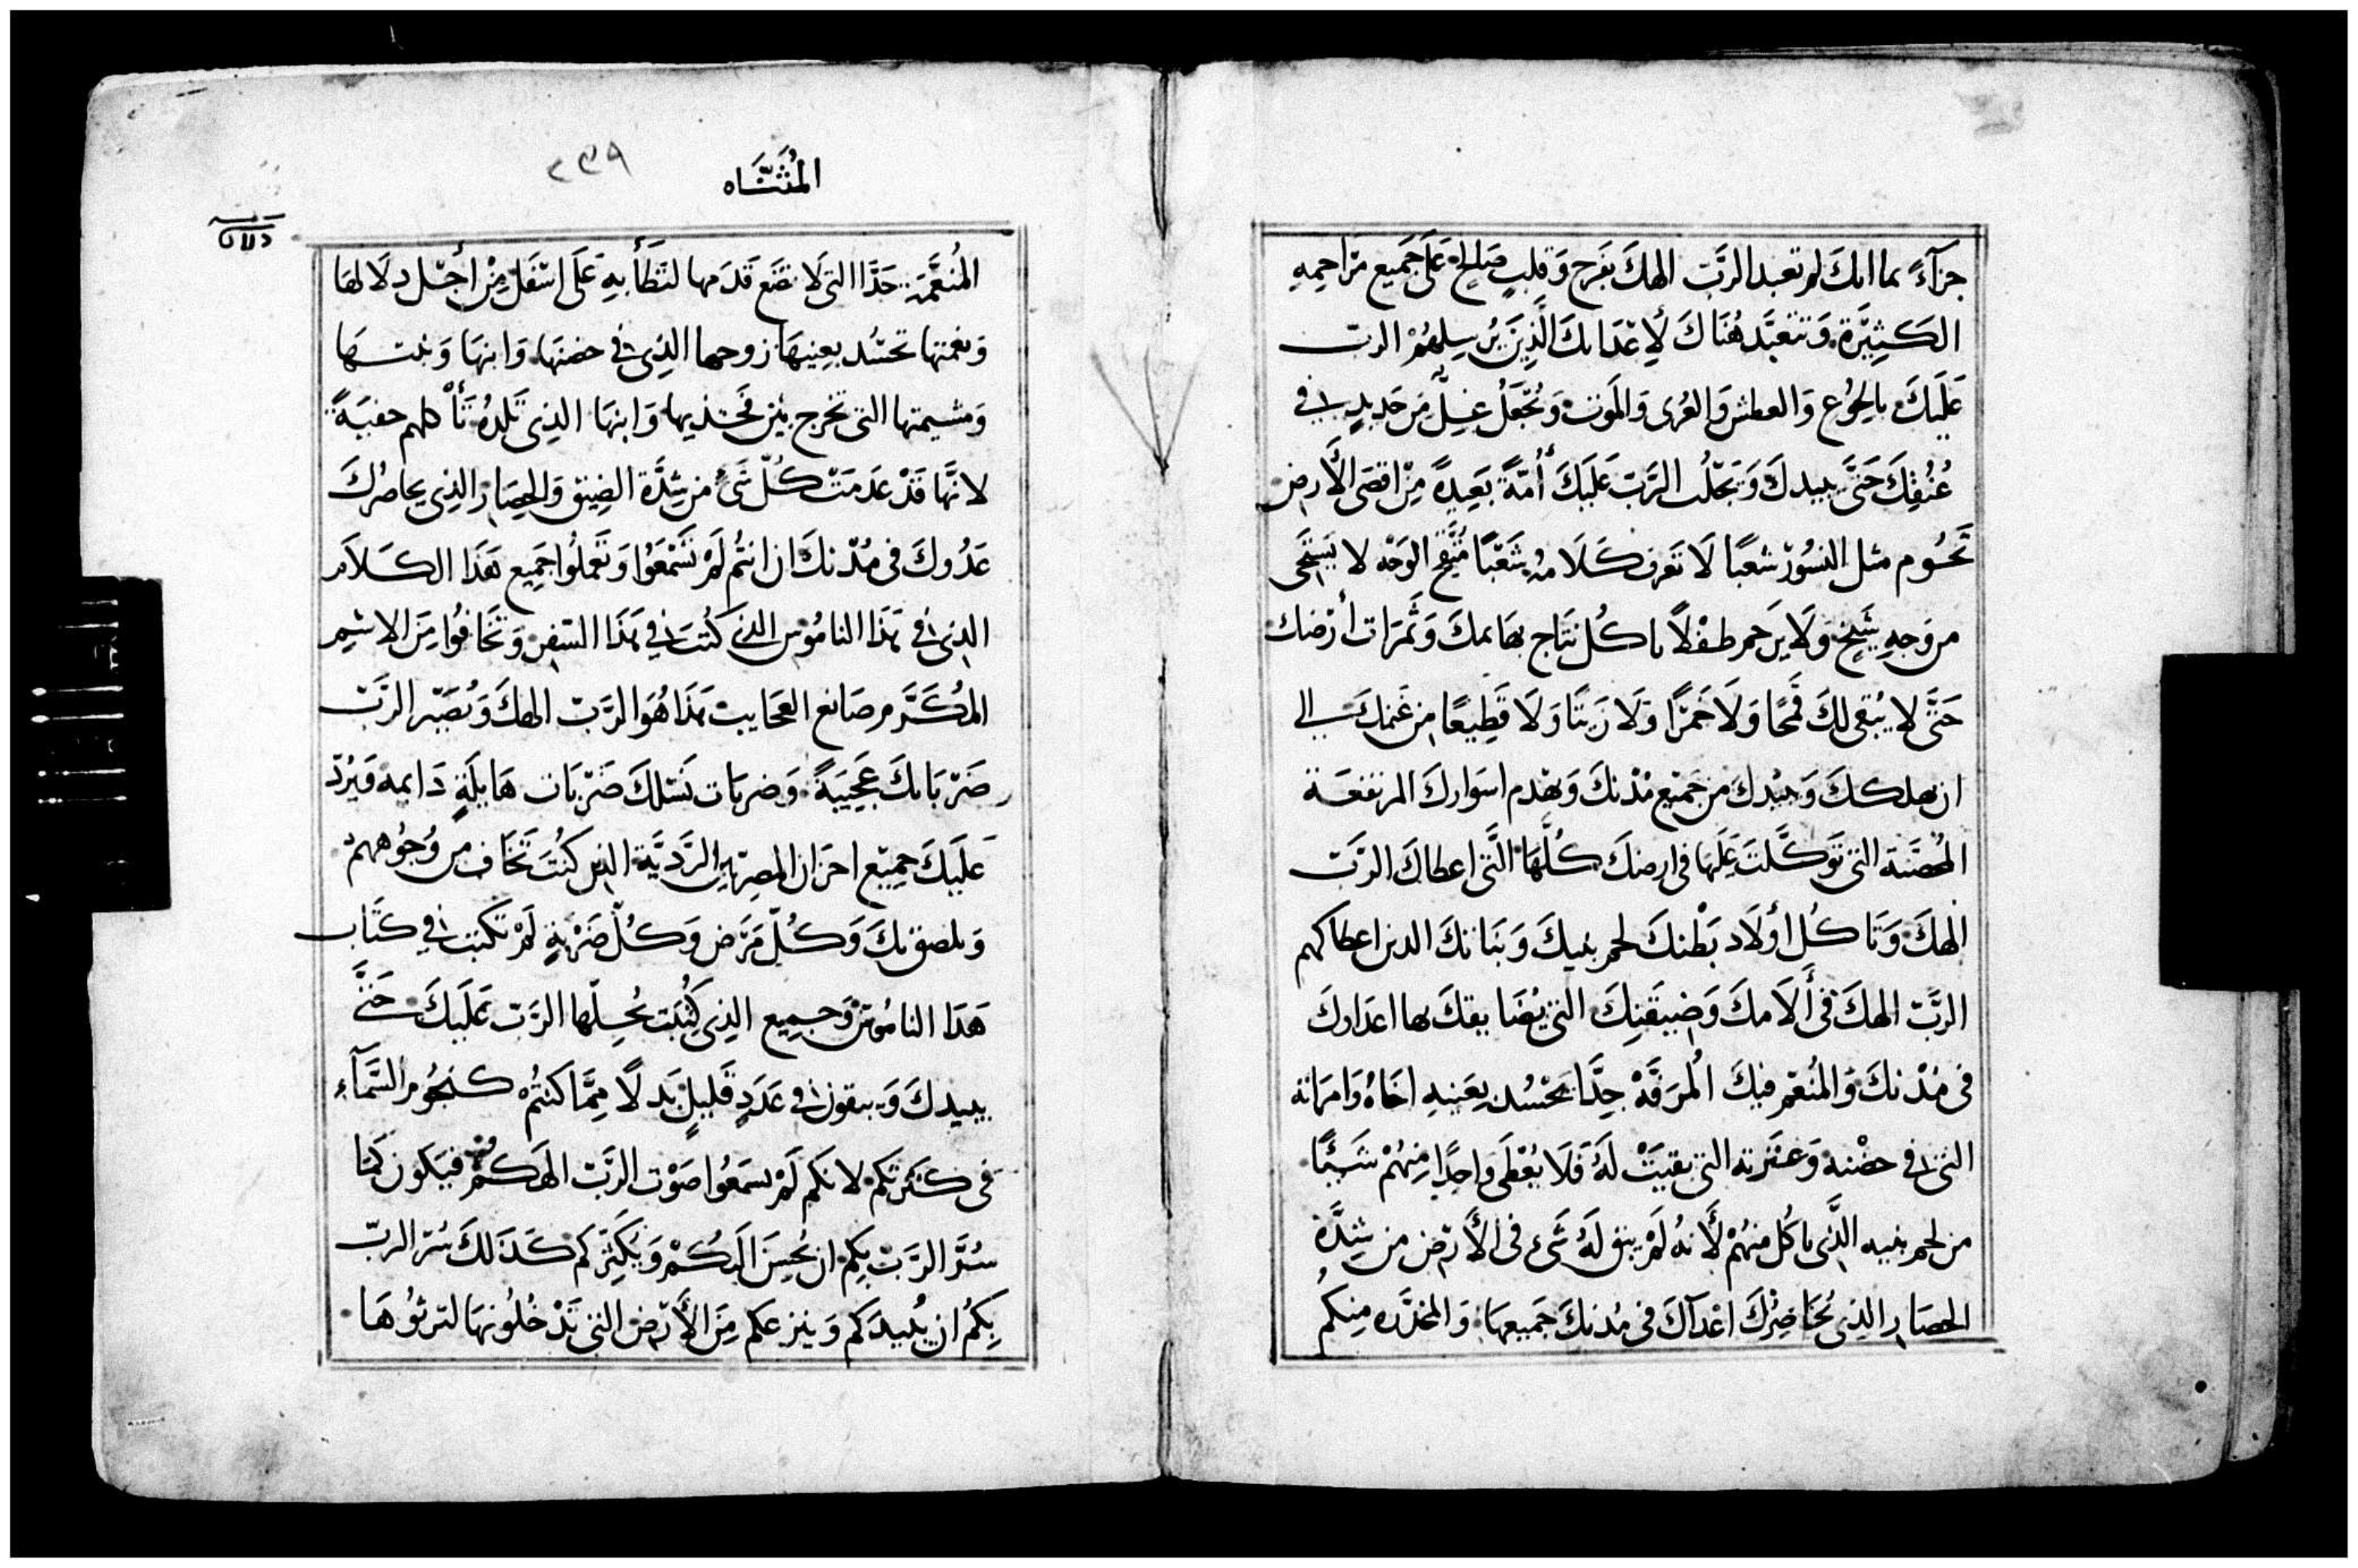 جزآءً بما انك لم تعبد الرَّب الهكَ بفرح وَقلبٍ صَالحٍ عَلَى جَميع مرَاحمِهِ
الكَثِيَرة وَتتعَبَّد هُنَاكَ لأِعْدَايكَ الَّذِينَ يُرْسِلهُمْ الرب
عَلَيكَ بالجُوع وَالعطش وَالعُرى وَالمَوت وَتُجْعَلُ غِلٌّ مِن حَديدٍ في
عُنُقِكَ حَتَّى يبيدكَ وَيَجْلُب الرَّبّ عَلَيكَ أُمّةً بَعِيدةً مِنْ اقصَى الأَرض
تَحُوم مثل النسُورْ شعبًا لَا تَعرف كَلَامهُ شَعْبًا مُتَّقِحْ الوَجْه لا يَسْتَحى
من وَجهِ شَيخ وَلَا يَرحَم طفْلًا ياكُل نتَاج بهَايمكَ وَثَمرَات أرْضك
حَتَّى لا يُبْقى لكَ قَمحًا وَلَا خَمرًا وَلَا زَيتًا وَلَا قَطِيعًا من غنمكَ الى
ان يهلككَ وَيبيْدكَ من جَميْع مُدْنكَ وَيهْدم اسوَاركَ المرتفعَة
المُحصَّنَة التى تَوَكَّلتَ عَلَيهَا فى ارضكَ كُلّهَا الَّتى اعطاكَ الرَّبّ
الهكَ وَتَاكُل أولَاد بَطْنكَ لحم بنيكَ وَبَنَاتكَ الدين اعطاكهم
الرَّبّ الهكَ فى أَلَامكَ وَضِيقَتِكَ التى يُضَايقكَ بها اعدَاوكَ
فى مُدْنكَ وَالمُنعّم فيكَ المُرَفَّهْ جِدًّا يَحْسُد بِعَينهِ اخَاهُ وَامرَاته
التى في حضْنه وَعشرته التى بقيَتْ لَهُ فَلَا يُعْطَى وَاحِدًا مِنهُمْ شَيئًا
من لحم بنيه الَّذى ياكُل منهُمْ لأَنهُ لَمْ يبق لَهُ شَىء فى الأَرض من شِدَّة
الحصَار الذى يُحَاصِرُكَ اعْدَآكَ فى مُدنكَ جَميعهَا وَالمخدَّره مِنكُم
المُثَنَّاه
٢٣٩
المُنعَّمَة جَدًّا التى لَا تضَع قَدَمها لتَطَأ بهِ عَلَى اسْفَل مِنْ أجْل دلَالهَا
وَنعمتها تحسُد بعِينيهَا زوجها الذِى في حضنهَا وَابنهَا وَبنتهَا
وَمشيمتها التى تخرج بَيْن فَخذيها وَابنهَا الذِى تَلِدُهُ تأْكلهم خفيَةً
لانَّهَا قَدْ عَدمَتْ كُلّ شَىْ من شِدَّة الضِيق وَالحِصَار الذِى يحاصرُكَ
عَدُوكَ فى مُدْنكَ ان انتُم لَمْ تَسْمَعُوا وَتَعمَلُوا جَمِيع هَذَا الكَلَام
الذِى في هَذَا النامُوس الذى كُتبَ في هَذَا السّفِر وَتَخَافُوا مِنَ الاسْم
المُكَرَّم صَانع العجَايب هَذَا هُوَ الرَّبّ الهكَ وَيُصَيّر الرَّبّ
ضَرْبَاتكَ عَجِيبَةً وَضربَات نَسْلكَ ضَرْبَات هَايلَةٍ دَايمه وَيَرُدّ
عَلَيكَ جميْع احزَان المصرِيّين الرَّديَّة الذى كُنتَ تَخَاف من وُجُوههم
وَيلصق بكَ وَكُلّ مَرَض وَكُلّ ضَرْبةٍ لَمْ تكتب في كتَاب
هَذَا النامُوس وَجميع الذِى كُتِبَت يُحِلّها الرَّبّ عَلَيكَ حَتَّى
يبيدكَ وَيبقون في عَدَدٍ قَليلٍ بَدلًا مِمَّا كنتُم كنجُوم السَّمآء
فى كثرَتكم لانكم لَمْ تسمَعُوا صَوْت الرَّبّ الهكُم فيكون كمَا
سُرَّ الرَّبّ بكم ان يُحسِنَ اليكُمْ وَيُكَثِركم كَذَلكَ سُرّ الربّ
بكُم ان يُبيدَكم وَينزعكم مِنَ الأَرض التى تَدْخُلُونهَا لترثُوهَا